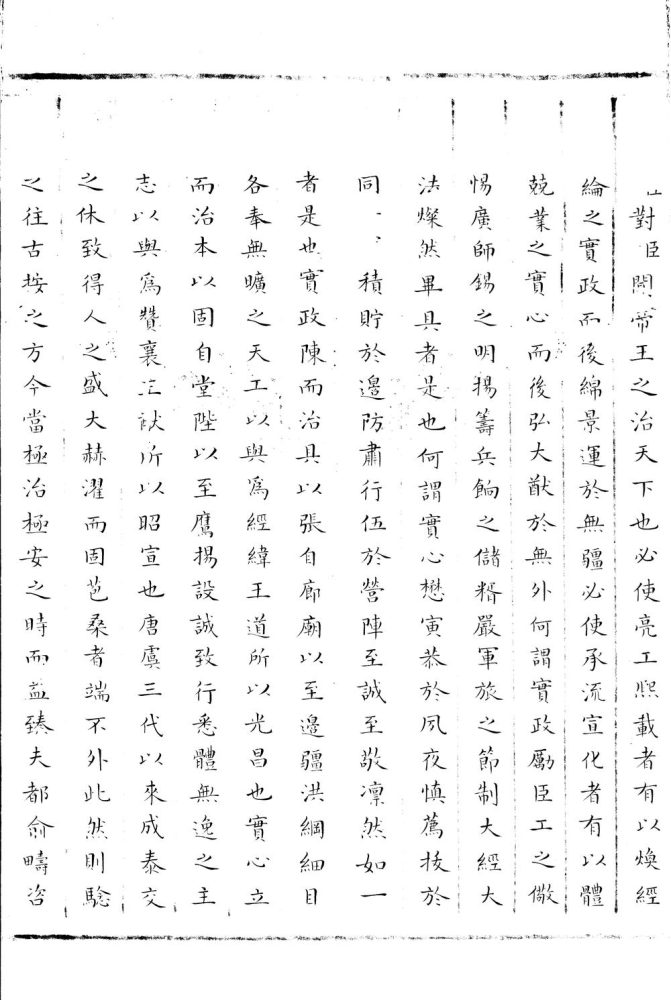 對臣聞帝王之治天下也必使亮工熙載者有以煥經
綸之實政而後綿景運於無疆必使承流宣化者有以體
兢業之實心而後弘大猷於無外何謂實政勵臣工之儆
惕廣師錫之明揚籌兵餉之儲糈嚴軍旅之節制大經大
法燦然畢具者是也何謂實心懋寅恭於夙夜慎薦拔於
同積貯於邊防肅行伍於營陣至誠至敬凛然如一
者是也實政陳而治具以張自廊廟以至邊疆洪綱細目
各奉無曠之天工以與為經緯王道所以光昌也實心立
而治本以固自堂陛以至鷹揚設誠致行悉體無逸之主
志以與為贊襄王猷所以昭宣也唐虞三代以來成泰交
之休致得人之盛大赫濯而固苞桑者端不外此然則驗
之往古按之方今當極治極安之時而益臻夫都俞疇咨